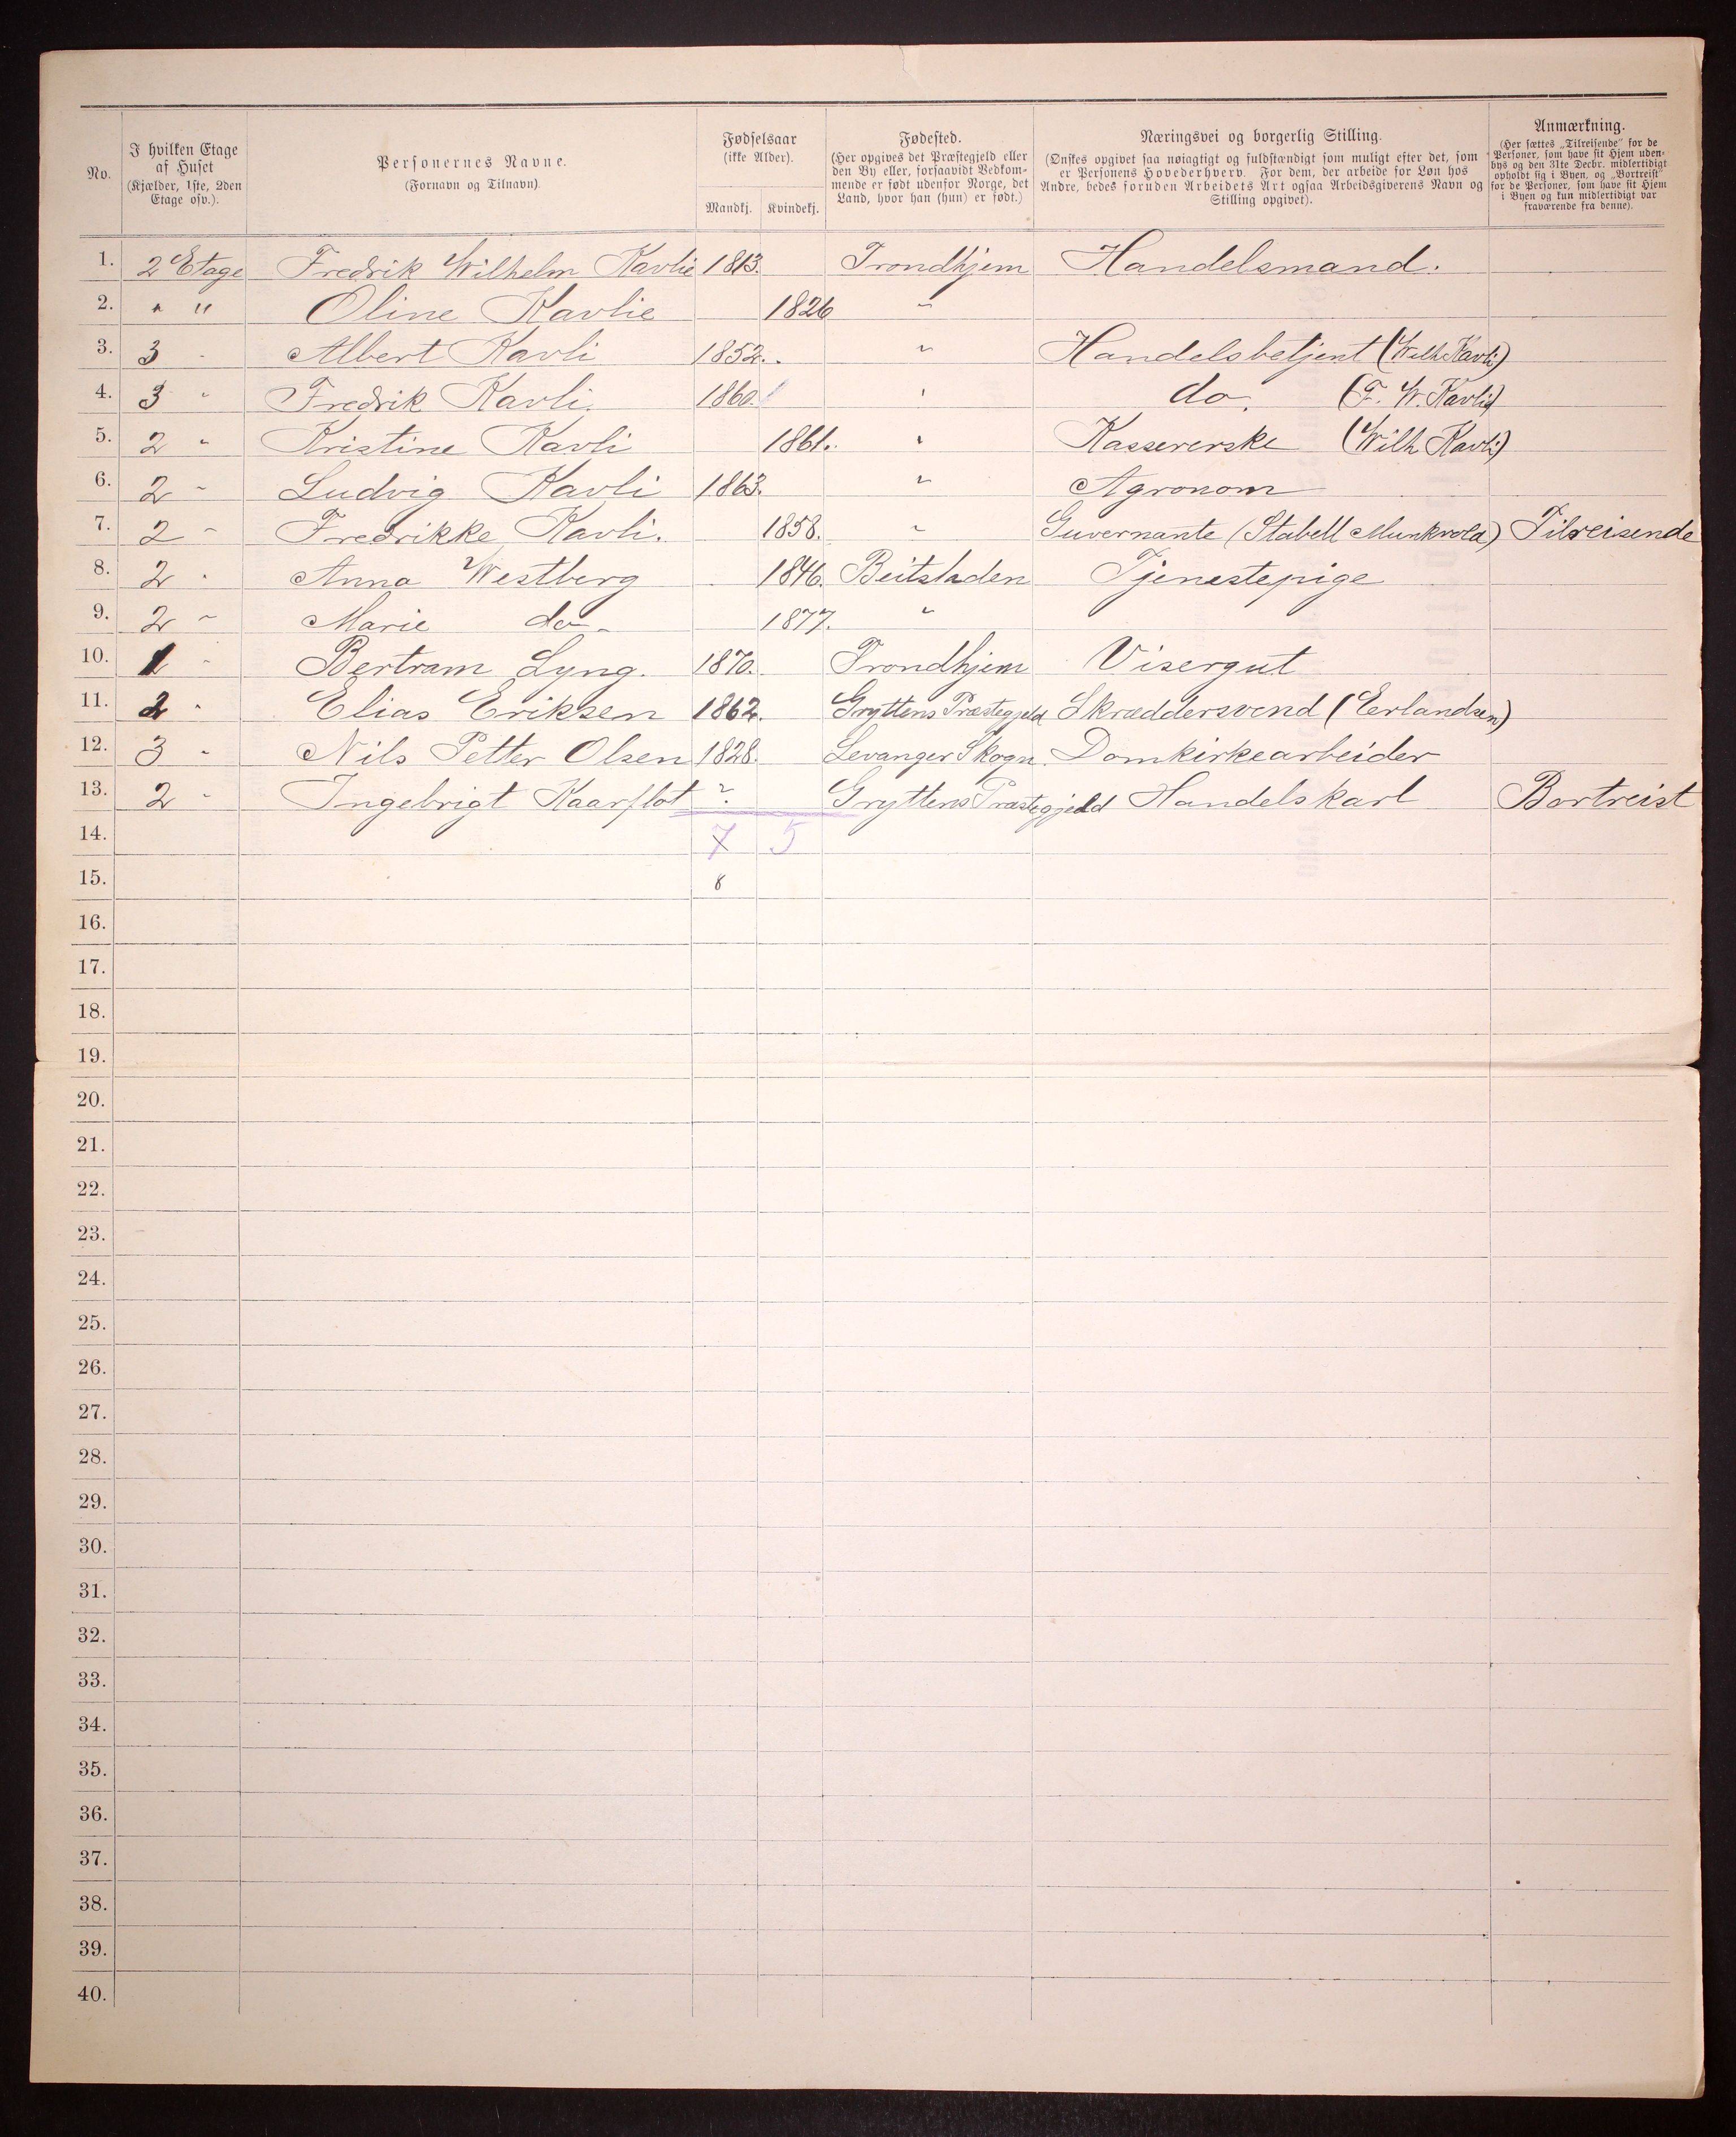 No.
I hvilken Etage
af Huset
(Kjælder, 1ste, 2den
Etage osv.).
Personernes Navne.
(Fornavn og Tilnavn)
Fødselsaar
(ikke Alder).
Mandkj. Kvindekj.
Fødested.
(Her opgives det Præstegjeld eller
den By eller, forsaavidt Vedkom-
mende er født udenfor Norge, det
Land, hvor han (hun) er født.)
Næringsvei og borgerlig Stilling.
(Ønskes opgivet saa nøiagtigt og fuldstændigt som muligt efter det, som
er Personens Hovederhverv. For dem, der arbeide for Løn hos
Andre, bedes foruden Arbeidets Art ogsaa Arbeidsgiverens Navn og
Stilling opgivet).
Anmærkning.
(Her sættes „Tilreisende" for de
Personer, som have sit Hjem uden-
bys og den 31te Decbr. midlertidigt
opholdt sig i Byen, og „Bortreist"
for de Personer, som have sit Hjem
i Byen og kun midlertidigt var
fraværende fra denne).
1. 2 Etage Fredrik Wilhelm Kavlie 1813. Trondhjem Handelsmand.
2. " " Oline Kavlie 1826 "
3. 3 " Albert Kavli 1852. " Handelsbetjent (Wilh Kavli)
4. 3 " Fredrik Kavli. 1860. " do. (F. W. Kavli)
5. 2 " Kristine Kavli 1861. " Kassererske (Wilh Kavli)
6. 2 " Ludvig Kavli 1863. " Agronom
7. 2 " Fredrikke Kavli. 1858. " Guvernante (Stabell Munkvold) Tilreisende
8. 2 " Anna Westberg 1846. Beitstaden Tjenestepige
9. 2 " Marie do 1877. "
10. 1 " Bertram Lyng. 1870. Trondhjem Visergut
11. 2 " Elias Eriksen 1862. Gryttens Præstegjeld Skræddersvend (Erlandsen)
12. 3 " Nils Petter Olsen 1828. Levanger Skogn Domkirkearbeider
13. 2 " Ingebrigt Kaarflot ? Gryttens Præstegjeld Handelskarl Bortreist
14. 7 5
15. 8
16.
17.
18.
19.
20.
21.
22.
23.
24.
25.
26.
27.
28.
29.
30.
31.
32.
33.
34.
35.
36.
37.
38.
39.
40.